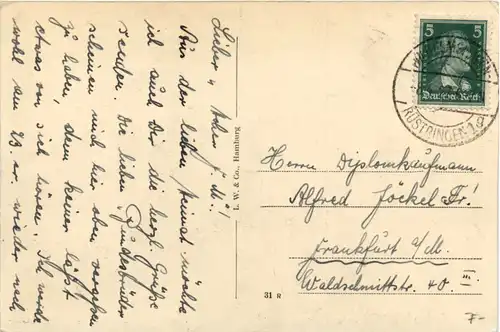 Lieber
Aus der lieben Heimat möchte
ich auch Dir die herzl. Grüße
senden. Die lieben Bundesbrüder
scheinen mich hier oben vergessen
zu haben, denn keiner läßt
etwas von sich hören. Ich werde
wohl am 23. cr. wieder nach
L. W. & Co., Hamburg
31 R
5 5
Deutsches Reich
RÜSTRINGEN
Herrn Diplomkaufmann
Alfred Jöckel Fr!
Frankfurt a/M.
Waldschmittstr. 40 III.
7-